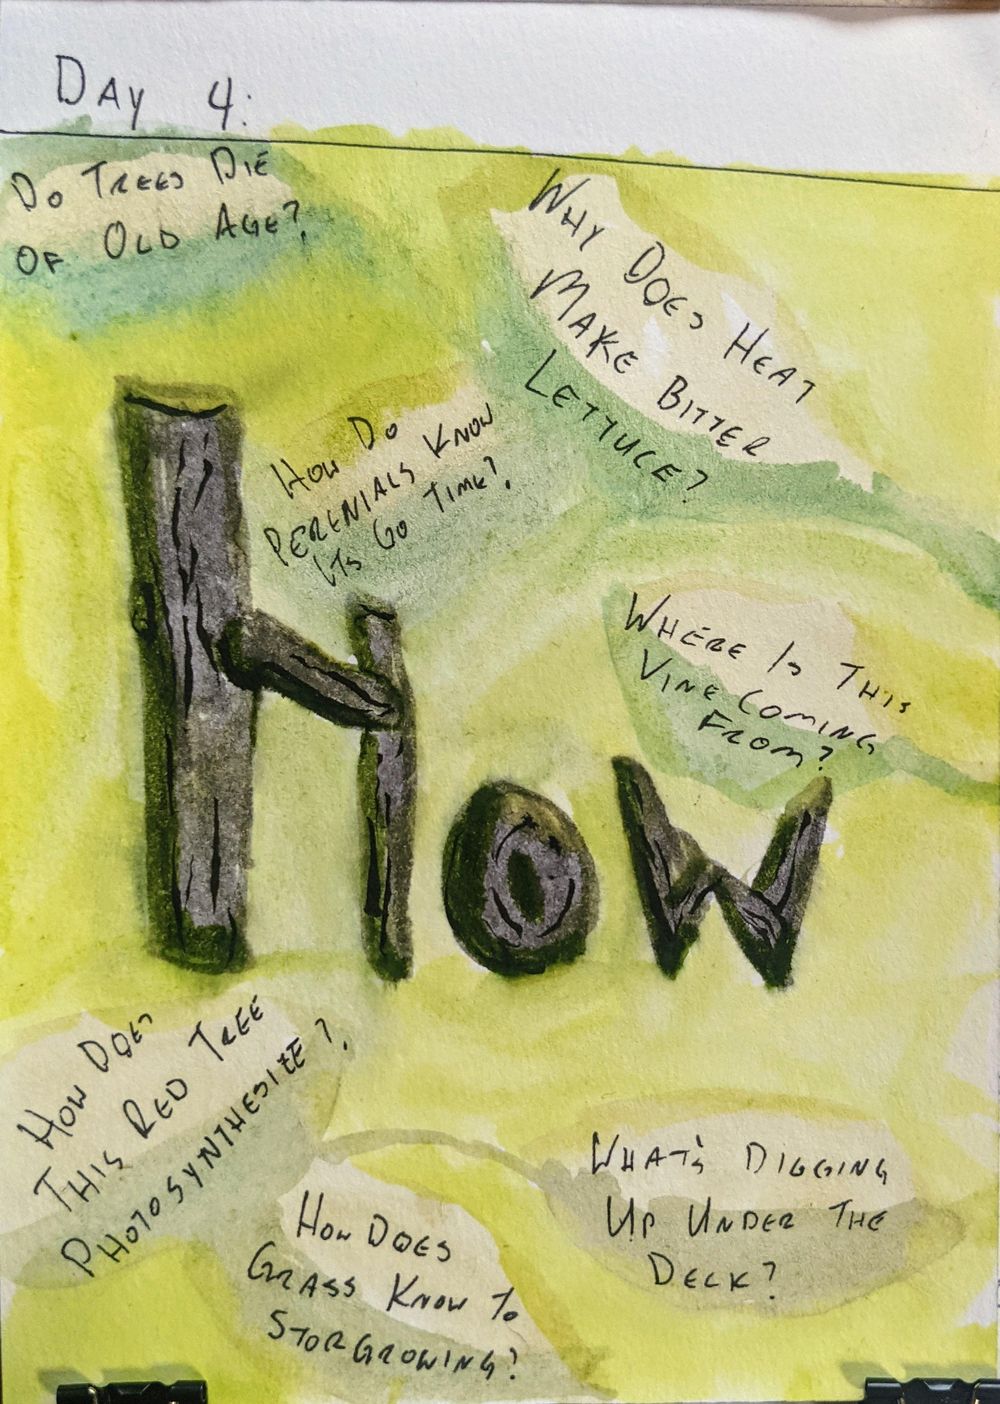 DAY 4:
DO TREES DIE
OF OLD AGE?
WHY DOES HEAT
MAKE BITTER
LETTUCE?
HOW DO
PERENIALS KNOW
ITS GO TIME?
WHERE IS THIS
VINE COMING
FROM?
HOW
HOW DOES
THIS RED TREE
PHOTOSYNTHESIZE?
WHAT'S DIGGING
UP UNDER THE
DECK?
HOW DOES
GRASS KNOW TO
STOP GROWING?